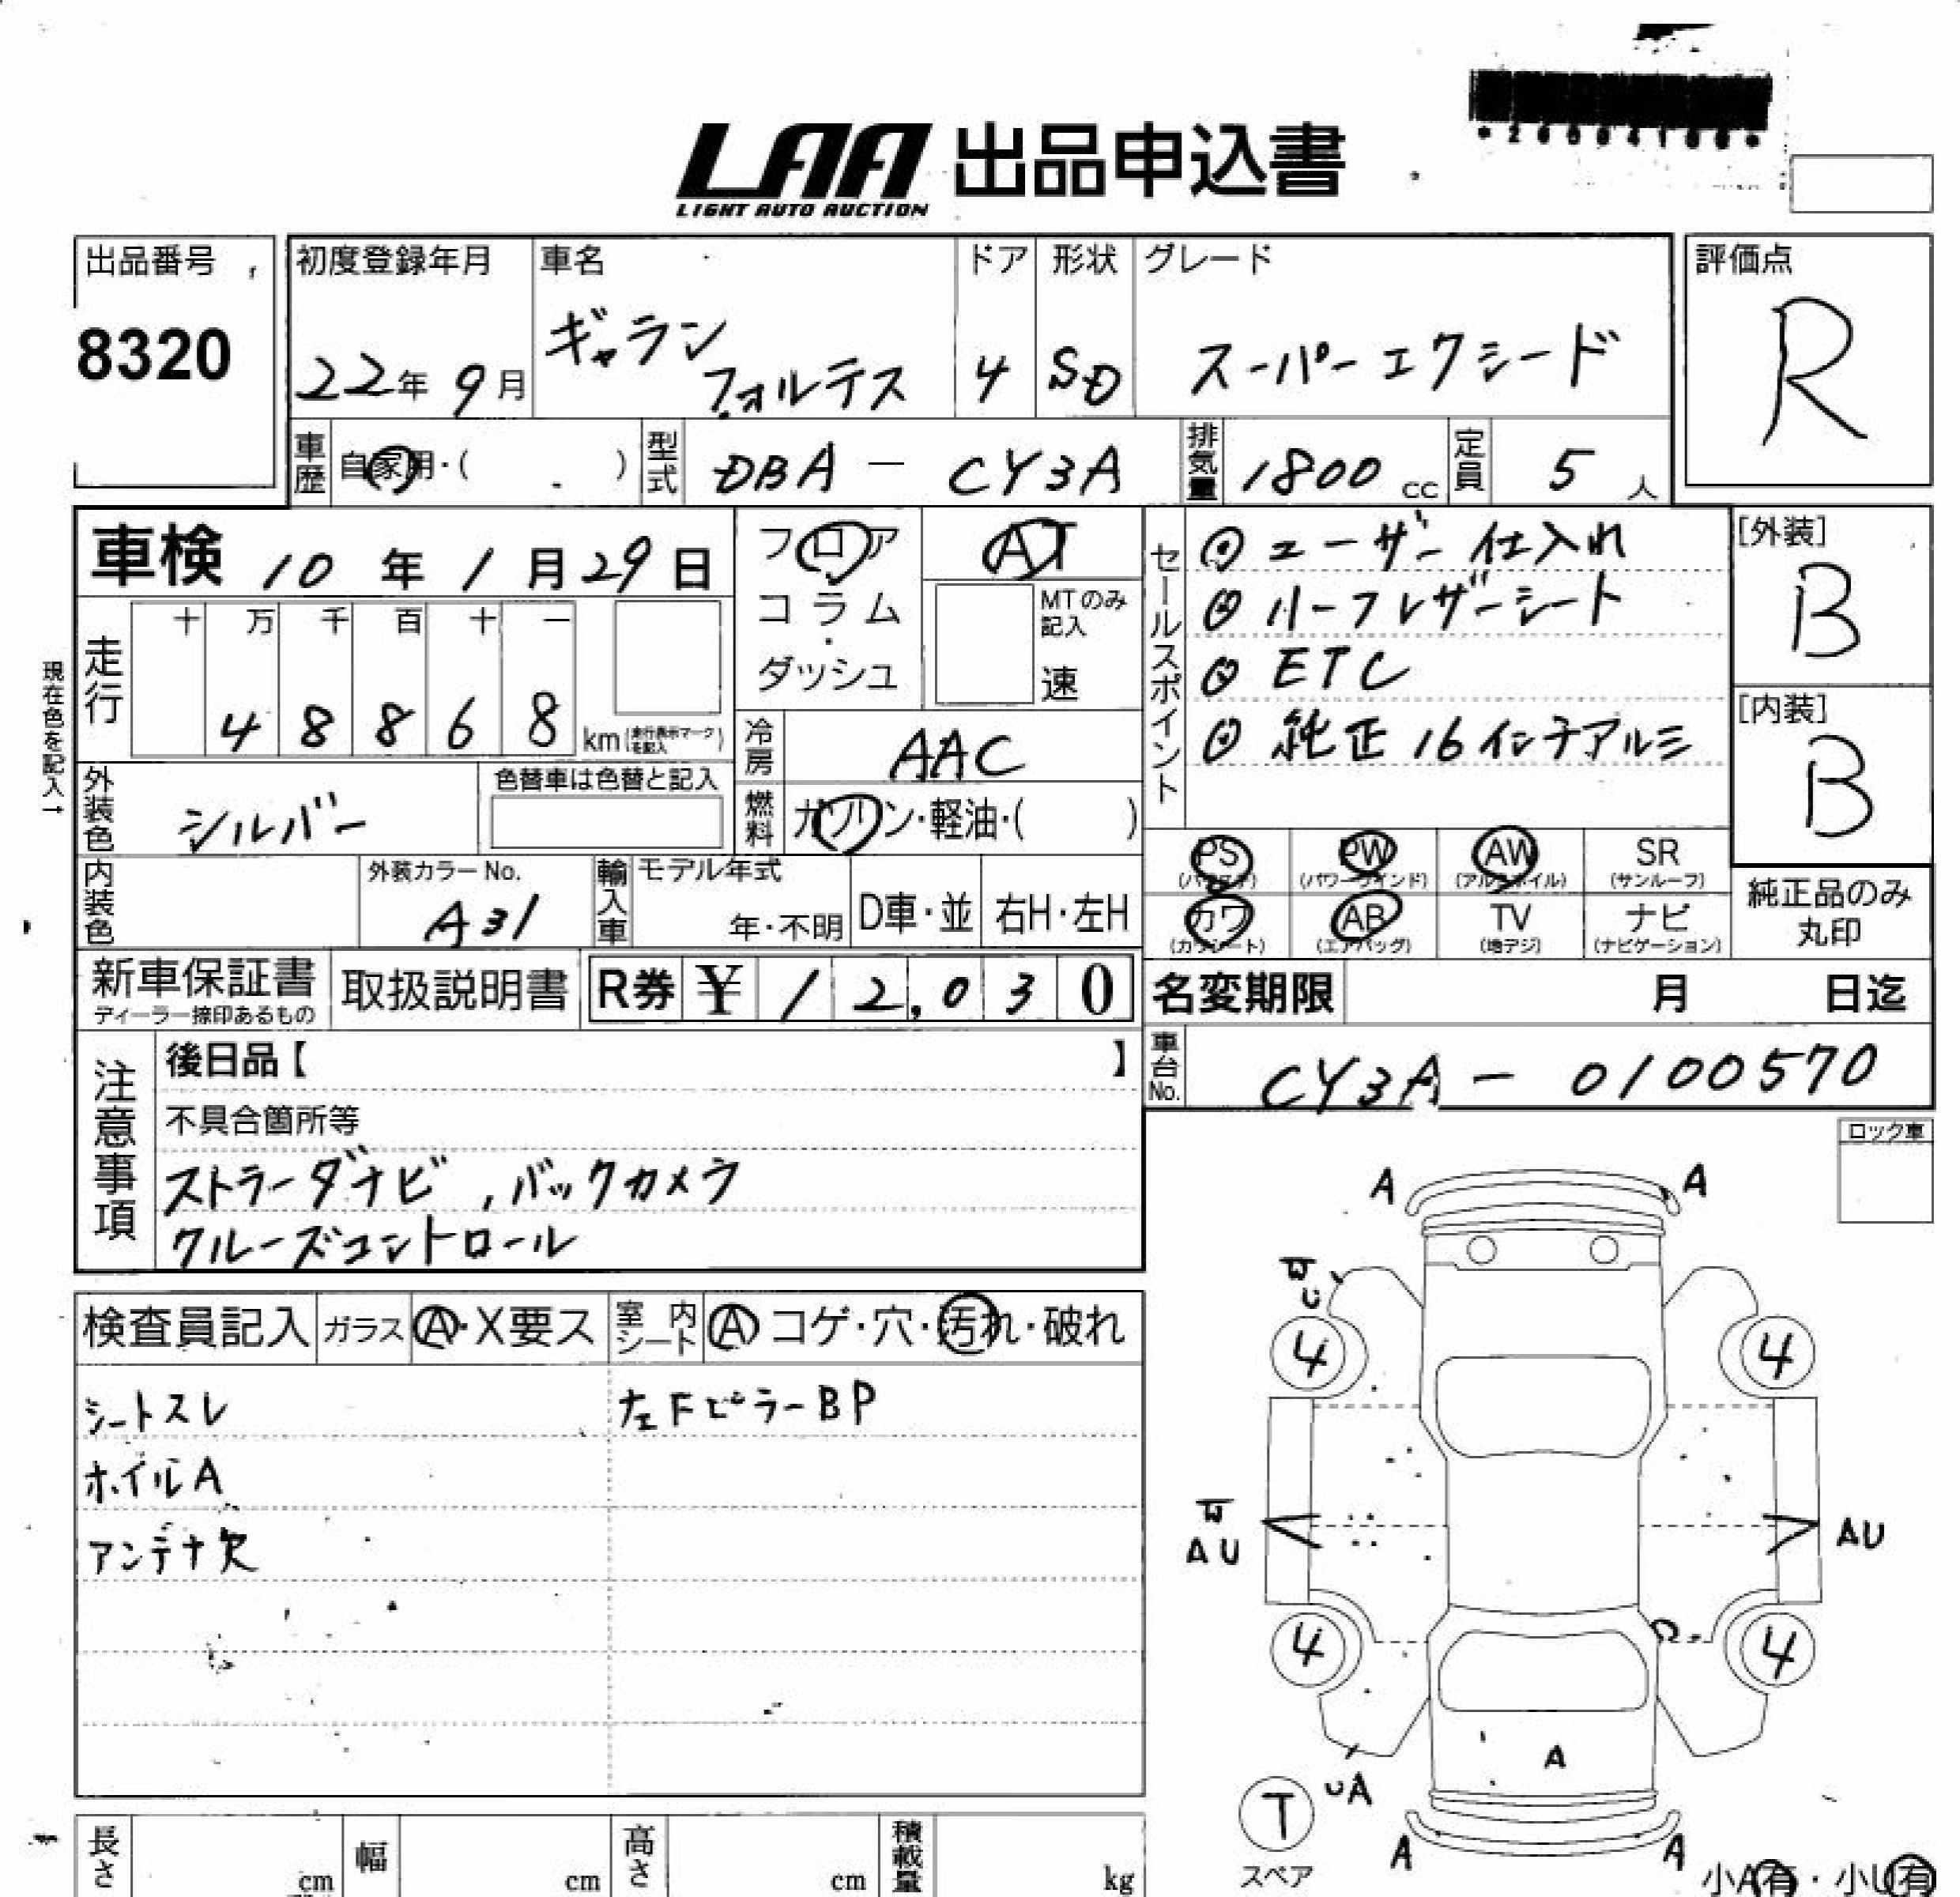 LAA 出品申込書
LIGHT AUTO AUCTION
出品番号
8320
初度登録年月
22年 9月
車名
ギャラン
フォルテス
ドア
4
形状
SD
グレード
スーパーエクシード
評価点
R
車歴
自家用・( )
型式
DBA - CY3A
排気量
1800 cc
定員
5 人
車検 10 年 1 月 29 日
フロア
コラム
ダッシュ
AT
MTのみ
記入
速
セールスポイント
◎ ユーザー仕入れ
◎ ハーフレザーシート
◎ ETC
◎ 純正16インチアルミ
[外装]
B
[内装]
B
現在色を記入→
走行
十 万 千 百 十 一
4 8 8 6 8 km(走行表示マークを記入)
冷房
AAC
外装色
シルバー
色替車は色替と記入
燃料
ガソリン・軽油・( )
PS
(パワステ)
PW
(パワーウインド)
AW
(アルミホイル)
SR
(サンルーフ)
カワ
(カワシート)
AB
(エアバッグ)
TV
(地デジ)
ナビ
(ナビゲーション)
純正品のみ
丸印
内装色
外装カラーNo.
A31
輸入車
モデル年式
年・不明
D車・並
右H・左H
新車保証書
ディーラー捺印あるもの
取扱説明書
R券 ¥ 12,030
名変期限 月 日迄
車台No.
CY3A - 0100570
注意事項
後日品【 】
不具合箇所等
ストラーダナビ,バックカメラ
クルーズコントロール
ロック車
検査員記入
ガラス
A・X要ス
室内シート
A コゲ・穴・汚れ・破れ
シートスレ
左FピラーBP
ホイルA
アンテナ欠
A A
4 4
AU AU
4 4
A
UA
T
スペア
A A
小A有・小U有
長さ cm
幅 cm
高さ cm
積載量 kg